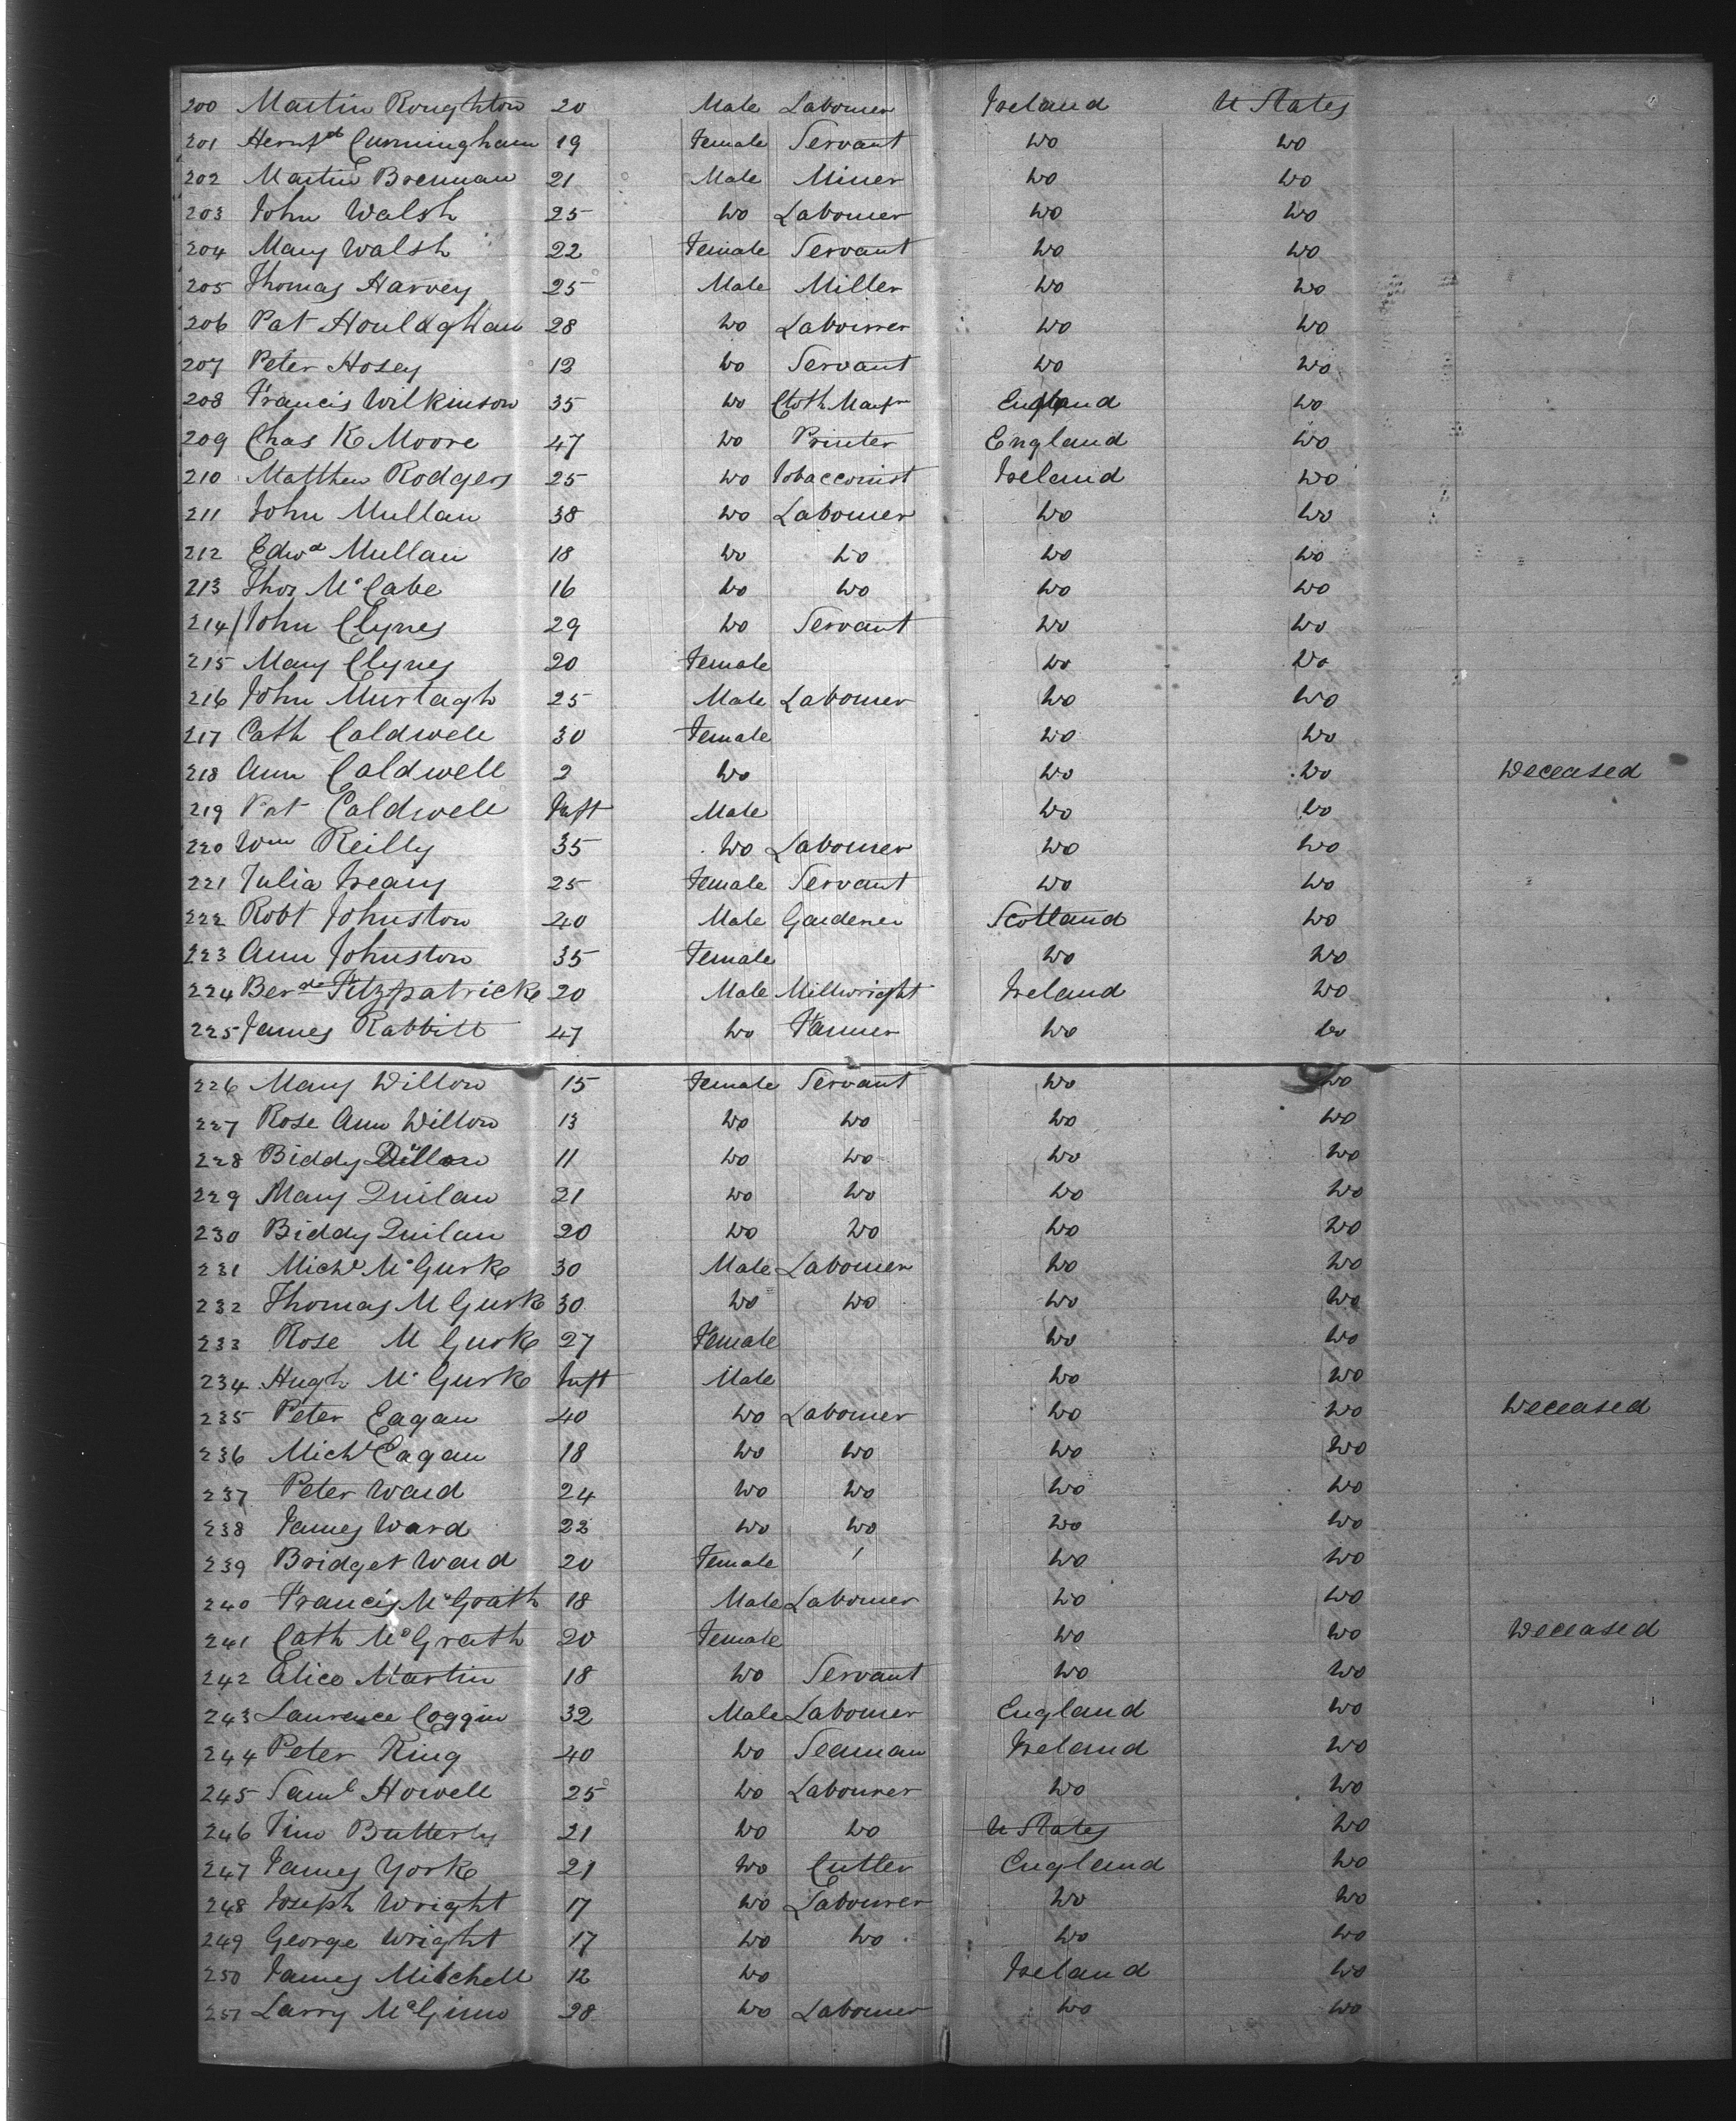 200 Martin Roughton 20 Male Labourer Ireland U States
201 Cunningham 19 Female Servant Do Do
202 Martin Brennan 21 Male Miner Do Do
203 John Walsh 25 Do Labourer Do Do
204 Mary Walsh 22 Female Servant Do Do
205 Thomas Harvey 25 Male Miller Do Do
206 Pat Houlaghan 28 Do Labourer Do Do
207 Peter Hosey 12 Do Servant Do Do
208 Francis Wilkinson 35 Do Cloth Manfr England Do
209 Chas K Moore 47 Do Printer England Do
210 Matthew Rodgers 25 Do Tobacconist Ireland Do
211 John Mullan 38 Do Labourer Do Do
212 Edwd Mullan 18 Do Do Do Do
213 Thos McCabe 16 Do Do Do Do
214 John Clynes 29 Do Servant Do Do
215 Mary Clynes 20 Female Do Do
216 John Murtagh 25 Male Labourer Do Do
217 Cath Caldwell 30 Female Do Do
218 Ann Caldwell 2 Do Do Do Deceased
219 Pat Caldwell Inft Male Do Do
220 Wm Reilly 35 Do Labourer Do Do
221 Julia Treany 25 Female Servant Do Do
222 Robt Johnston 40 Male Gardener Scotland Do
223 Ann Johnston 35 Female Do Do
224 Berd Fitzpatricke 20 Male Millwright Ireland Do
225 James Rabbitt 47 Do Farmer Do Do
226 Mary Dillon 15 Female Servant Do Do
227 Rose Ann Dillon 13 Do Do Do Do
228 Biddy Dillon 11 Do Do Do Do
229 Mary Quilan 21 Do Do Do Do
230 Biddy Quilan 20 Do Do Do Do
231 Michl McGurk 30 Male Labourer Do Do
232 Thomas M Gurk 30 Do Do Do Do
233 Rose M Gurk 27 Female Do Do
234 Hugh Mc Gurk Inft Male Do Do
235 Peter Eagan 40 Do Labourer Do Do Deceased
236 Michl Eagan 18 Do Do Do Do
237 Peter Ward 24 Do Do Do Do
238 James Ward 22 Do Do Do Do
239 Bridget Ward 20 Female Do Do
240 Francis McGrath 18 Male Labourer Do Do
241 Cath McGrath 20 Female Do Do Deceased
242 Alice Martin 18 Do Servant Do Do
243 Laurence Coggin 32 Male Labourer England Do
244 Peter King 40 Do Seaman Ireland Do
245 Saml Howell 25 Do Labourer Do Do
246 Tim Butterly 21 Do Do U States Do
247 James York 21 Do Cutler England Do
248 Joseph Wright 17 Do Labourer Do Do
249 George Wright 17 Do Do Do Do
250 James Mitchell 12 Do Ireland Do
251 Larry McGinn 28 Do Labourer Do Do